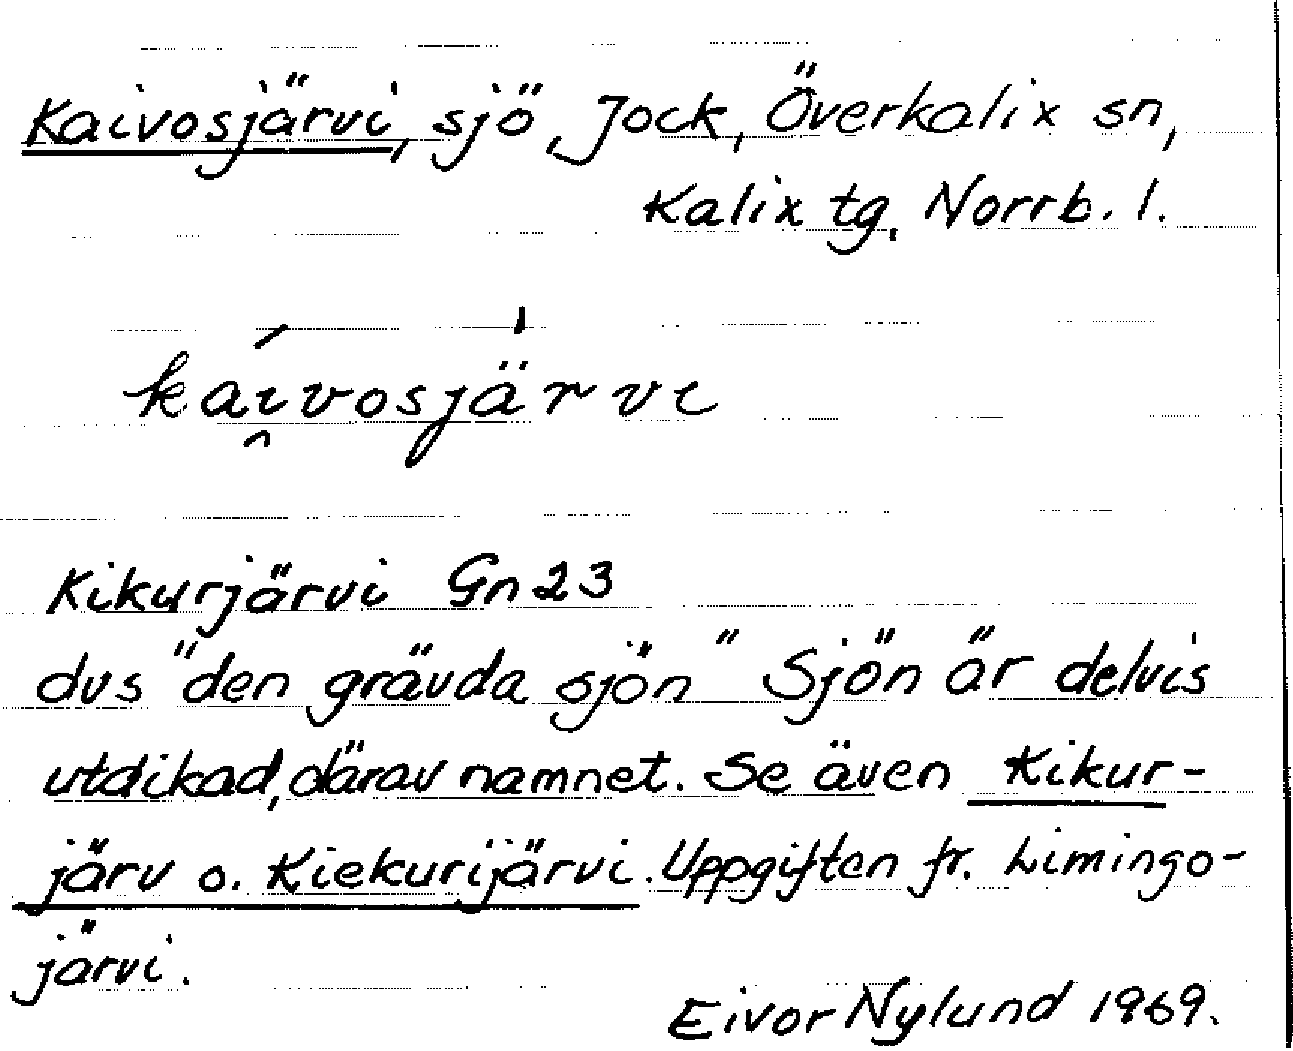 Kaivosjärvi, sjö, Jock, Överkalix sn,
Kalix tg. Norrb. l.
kái̯vosjä̍rvi
Kikurjärvi Gn 23
dvs "den grävda sjön" Sjön är delvis
utdikad, därav namnet. Se även Kikur-
järv o. Kiekurijärvi. Uppgiften fr. Limingo-
järvi.
Eivor Nylund 1969.